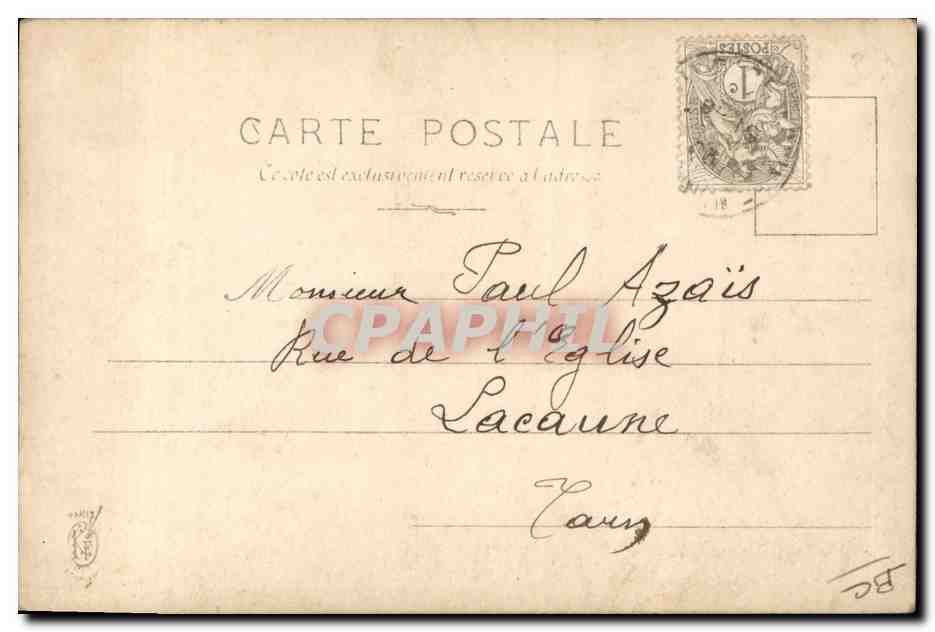 POSTES
1c
CARTE POSTALE
Ce côté est exclusivement réservé à l'adresse
Monsieur Paul Azaïs
CPAPHIL
Rue de l'Eglise
Lacaune
Tarn
PARIS